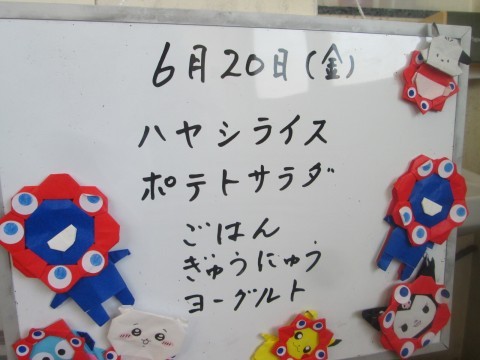 6月20日(金)
ハヤシライス
ポテトサラダ
ごはん
ぎゅうにゅう
ヨーグルト